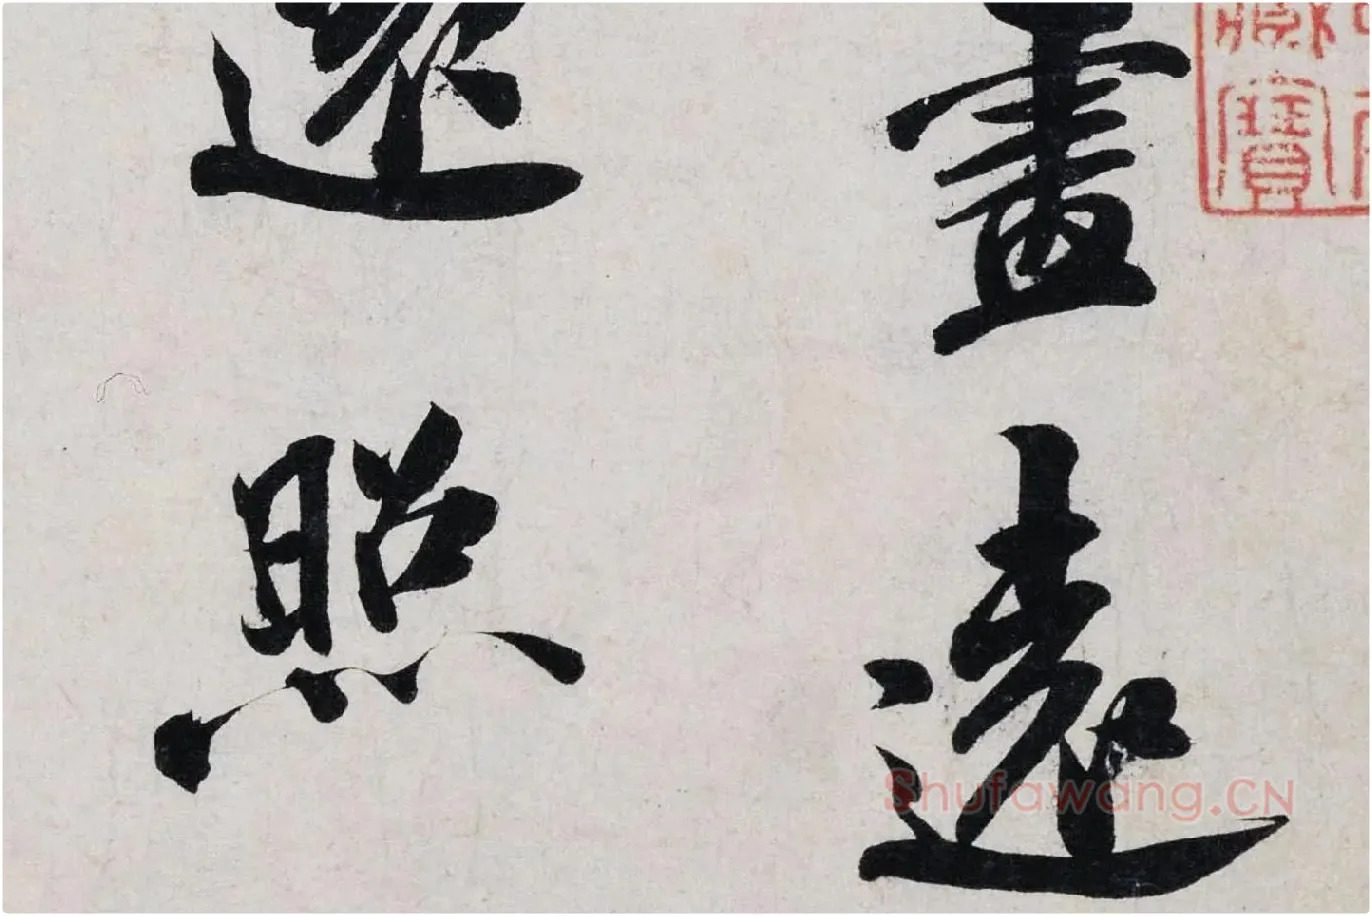 寶
畫遠
照
Shufawang.CN